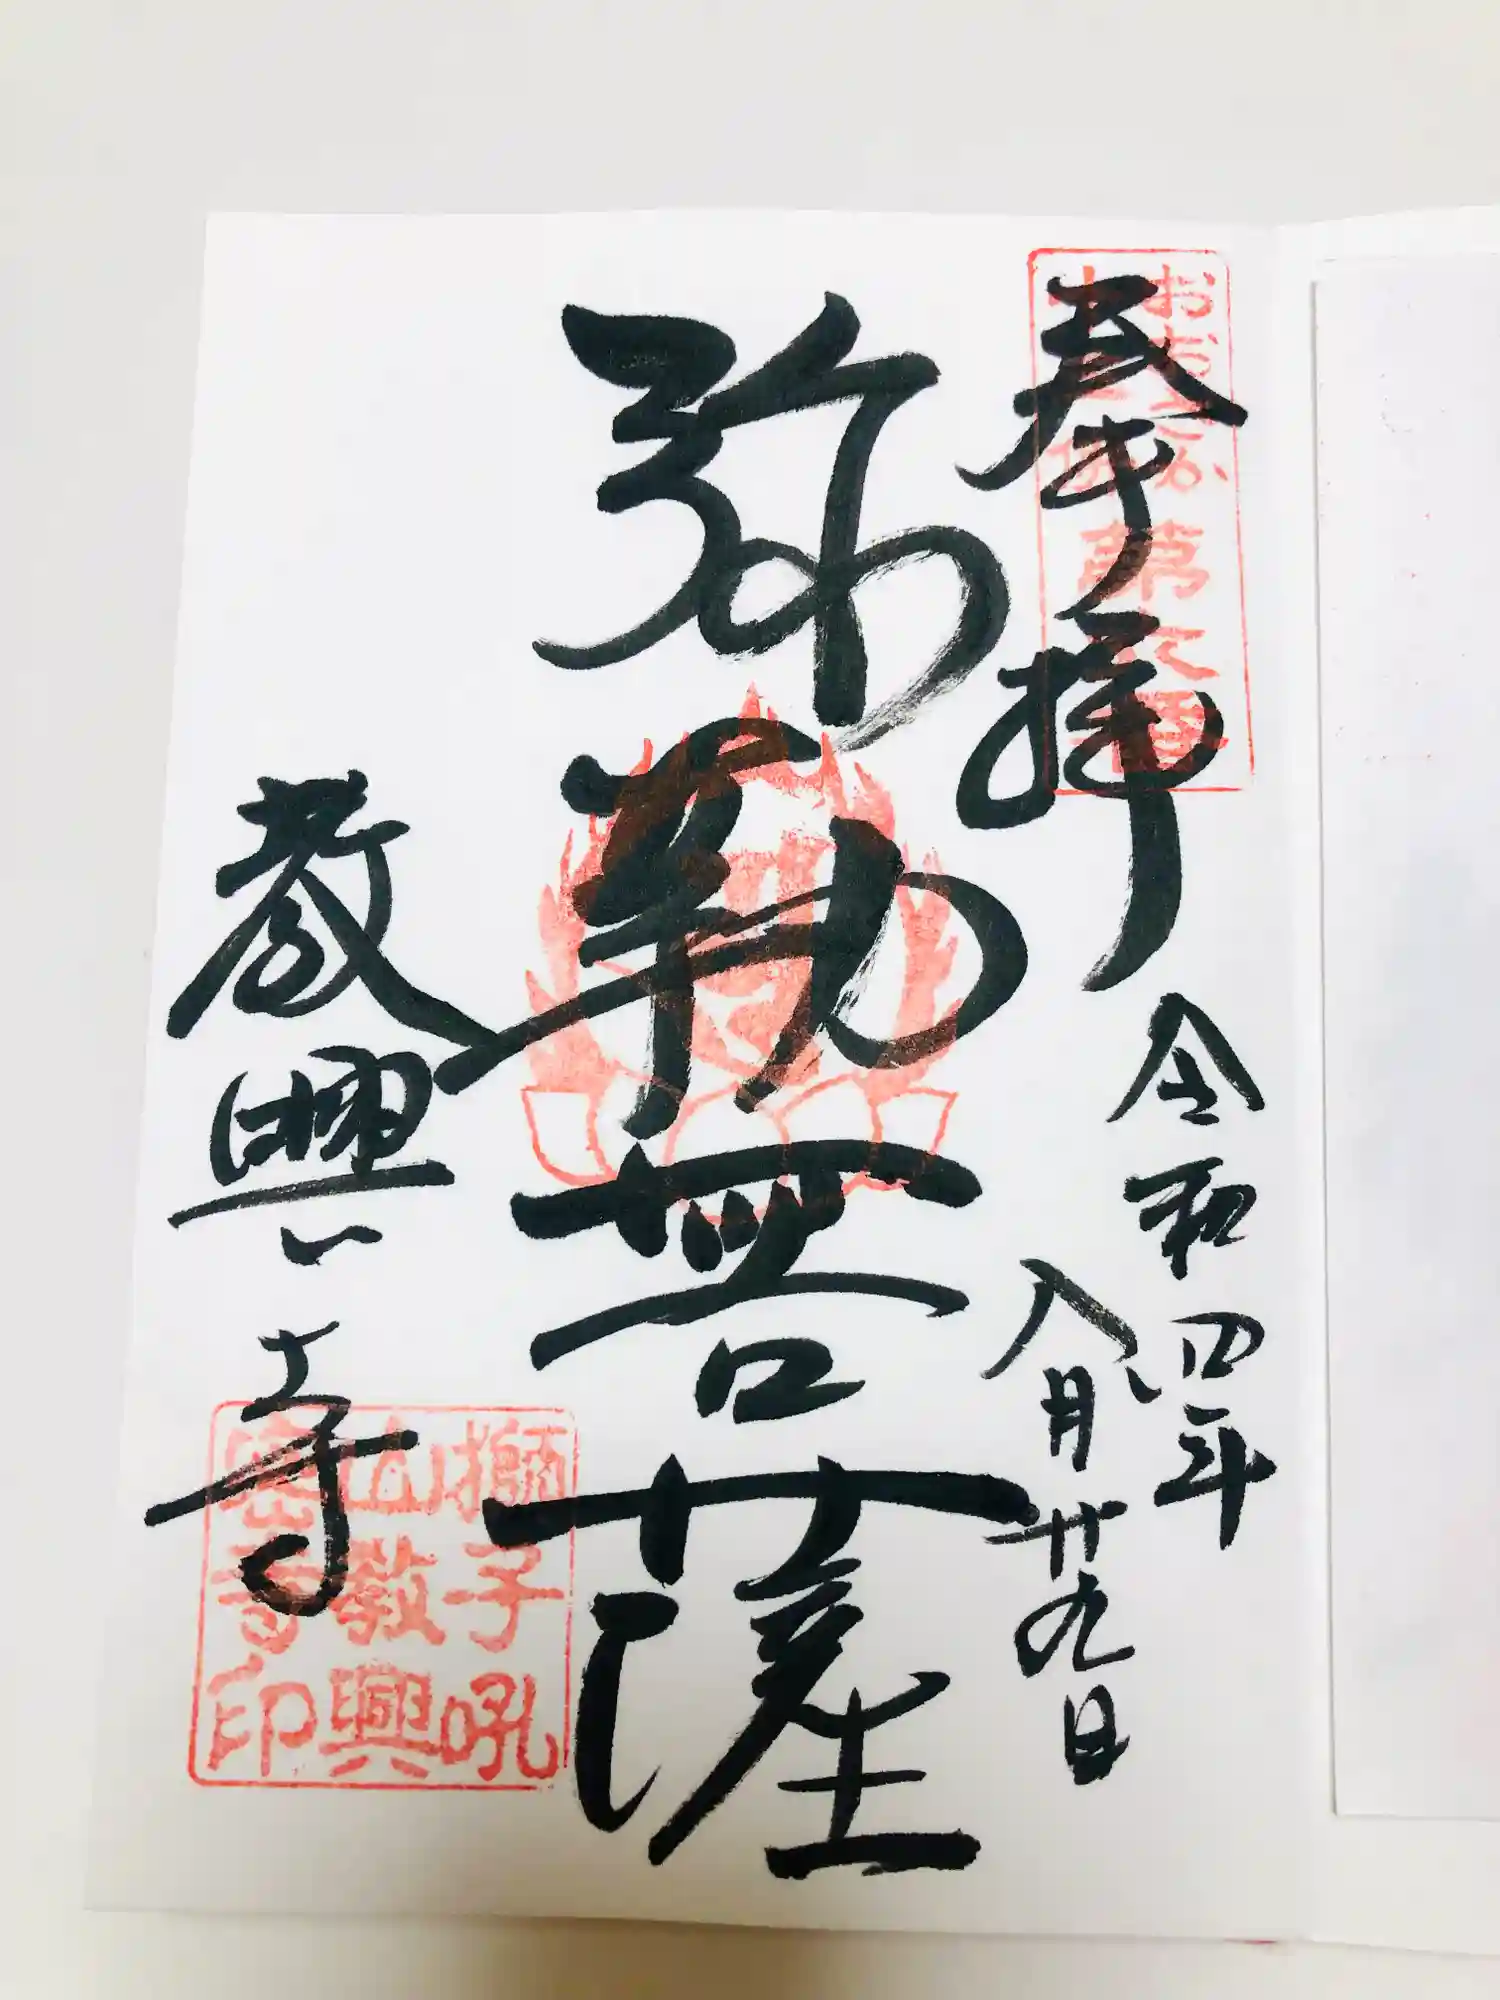 奉拝
令和四年
八月廿九日
弥勒菩薩
教興寺
獅子吼
山教興
密寺印